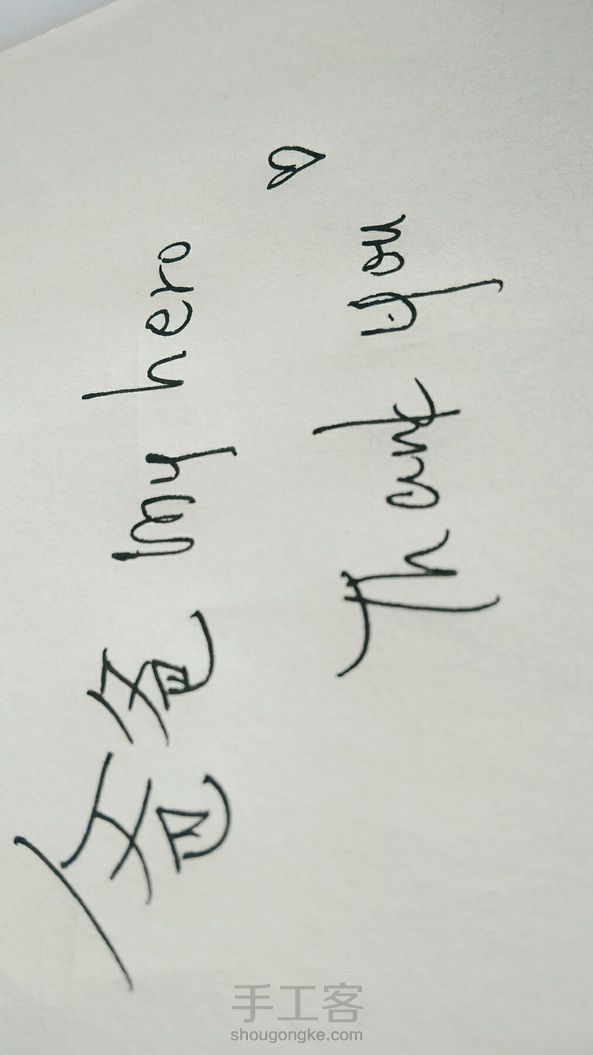 爸爸 my hero
Thank you ♡
手工客
shougongke.com